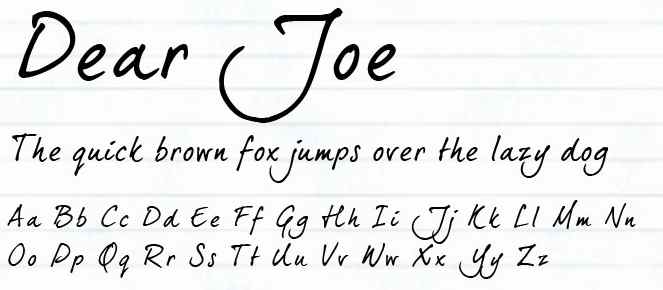 Dear Joe
The quick brown fox jumps over the lazy dog
Aa Bb Cc Dd Ee Ff Gg Hh Ii Jj Kk Ll Mm Nn
Oo Pp Qq Rr Ss Tt Uu Vv Ww Xx Yy Zz